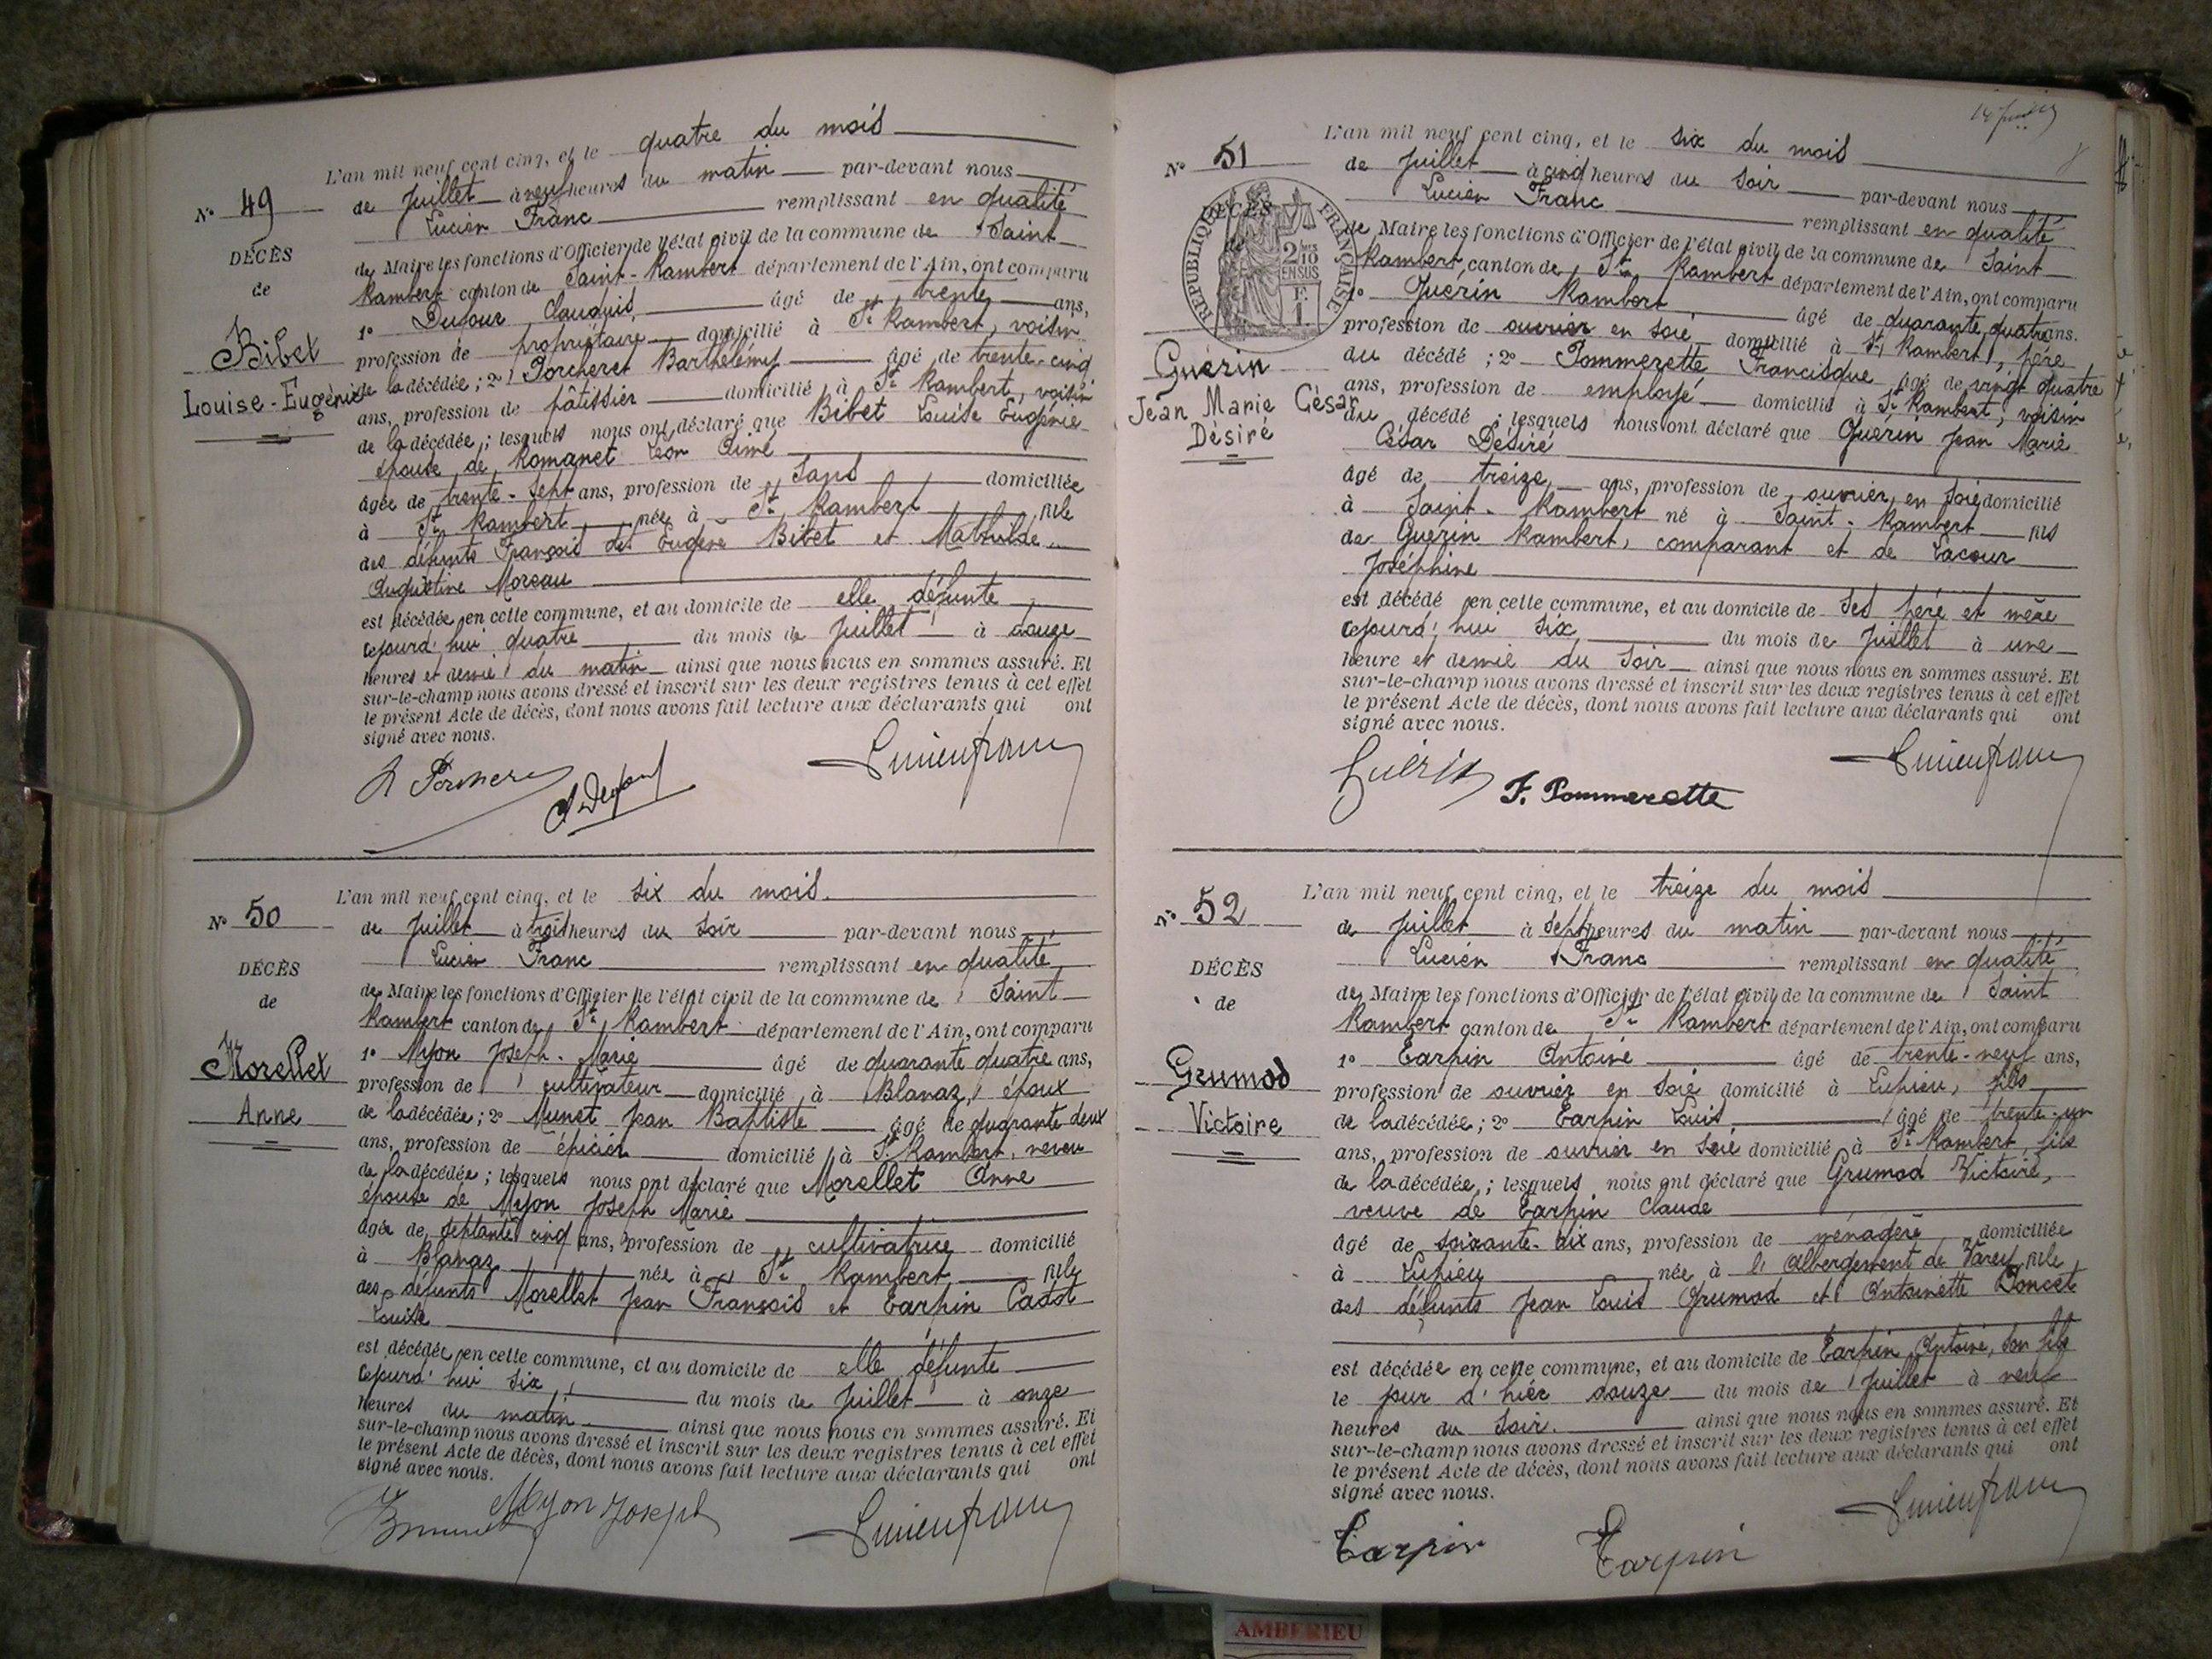 L'an mil neuf cent cinq, et le quatre du mois
N° 49
de Juillet à neuf heures du matin par-devant nous
Lucien Franc remplissant en qualité
DÉCÈS
de Maire les fonctions d'Officier de l'état civil de la commune de Saint
de
Rambert canton de Saint-Rambert département de l'Ain, ont comparu
1° Dufour Claudius, âgé de trente ans,
Bibet
profession de propriétaire domicilié à St Rambert, voisin
Louise-Eugénie
de la décédée; 2° Porcheret Barthélémy âgé de trente-cinq
ans, profession de pâtissier domicilié à St Rambert, voisin
de la décédée; lesquels nous ont déclaré que Bibet Louise Eugénie
épouse de Romanet Léon Aimé
âgée de trente-sept ans, profession de sans domiciliée
à St Rambert née à St Rambert fille
des défunts François Eugène Bibet et Mathilde
Augustine Moreau
est décédée en cette commune, et au domicile de elle défunte
cejourd'hui quatre du mois de Juillet à douze
heures et demie du matin ainsi que nous nous en sommes assuré. Et
sur-le-champ nous avons dressé et inscrit sur les deux registres tenus à cet effet
le présent Acte de décès, dont nous avons fait lecture aux déclarants qui ont
signé avec nous.
Lucien franc
L'an mil neuf cent cinq, et le six du mois.
N° 50
de Juillet à trois heures du soir par-devant nous
Lucien Franc remplissant en qualité
DÉCÈS
de Maire les fonctions d'Officier de l'état civil de la commune de Saint
de
Rambert canton de St Rambert département de l'Ain, ont comparu
1° Myon Joseph-Marie âgé de quarante quatre ans,
Morellet
profession de cultivateur domicilié à Blanaz, époux
Anne
de la décédée; 2° Munet Jean Baptiste âgé de quarante deux
ans, profession de épicier domicilié à St Rambert, neveu
de la décédée; lesquels nous ont déclaré que Morellet Anne
épouse de Myon Joseph Marie
âgée de septante cinq ans, profession de cultivatrice domicilié
à Blanaz née à St Rambert fille
des défunts Morellet Jean François et Tarpin Cadot
Louise
est décédée en cette commune, et au domicile de elle défunte
cejourd'hui six du mois de Juillet à onze
heures du matin ainsi que nous nous en sommes assuré. Et
sur-le-champ nous avons dressé et inscrit sur les deux registres tenus à cet effet
le présent Acte de décès, dont nous avons fait lecture aux déclarants qui ont
signé avec nous.
Myon Joseph
Lucien franc
L'an mil neuf cent cinq, et le six du mois
N° 51
de Juillet à cinq heures du soir par-devant nous
Lucien Franc remplissant en qualité
DÉCÈS
RÉPUBLIQUE FRANÇAISE
2/10 EN SUS
F. 1
de Maire les fonctions d'Officier de l'état civil de la commune de Saint
Rambert canton de St Rambert département de l'Ain, ont comparu
1° Guérin Rambert âgé de quarante quatre ans.
profession de ouvrier en soie domicilié à St Rambert, père
Guérin
du décédé; 2° Pommerette Francisque âgé de vingt quatre
Jean Marie César
ans, profession de employé domicilié à St Rambert, voisin
Désiré
du décédé; lesquels nous ont déclaré que Guérin Jean Marie
César Désiré
âgé de treize ans, profession de ouvrier en soie domicilié
à Saint-Rambert né à Saint-Rambert fils
de Guérin Rambert, comparant et de Lacour
Joséphine
est décédé en cette commune, et au domicile de ses père et mère
cejourd'hui six du mois de Juillet à une
heure et demie du soir ainsi que nous nous en sommes assuré. Et
sur-le-champ nous avons dressé et inscrit sur les deux registres tenus à cet effet
le présent Acte de décès, dont nous avons fait lecture aux déclarants qui ont
signé avec nous.
Lucien franc
Guérin
F. Pommerette
L'an mil neuf cent cinq, et le treize du mois
N° 52
de Juillet à sept heures du matin par-devant nous
Lucien Franc remplissant en qualité
DÉCÈS
de Maire les fonctions d'Officier de l'état civil de la commune de Saint
de
Rambert canton de St Rambert département de l'Ain, ont comparu
1° Tarpin Antoine âgé de trente-neuf ans,
Grumod
profession de ouvrier en soie domicilié à Lupieu, fils
Victoire
de la décédée; 2° Tarpin Louis, âgé de trente-un
ans, profession de ouvrier en soie domicilié à St Rambert, fils
de la décédée; lesquels nous ont déclaré que Grumod Victoire,
veuve de Tarpin Claude
âgé de soixante-dix ans, profession de ménagère domiciliée
à Lupieu née à l'Abergement de Varey fille
des défunts Jean Louis Grumod et Antoinette Poncet
est décédée en cette commune, et au domicile de Tarpin Antoine, son fils
le jour d'hier douze du mois de Juillet à neuf
heures du soir. ainsi que nous nous en sommes assuré. Et
sur-le-champ nous avons dressé et inscrit sur les deux registres tenus à cet effet
le présent Acte de décès, dont nous avons fait lecture aux déclarants qui ont
signé avec nous.
Lucien franc
Tarpin
Tarpin
AMBERIEU